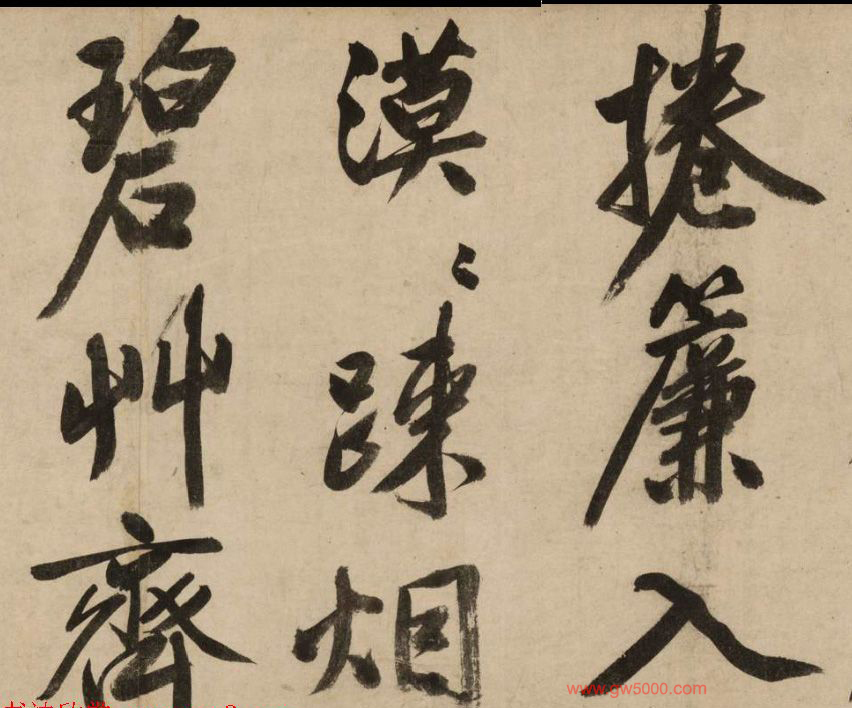 捲簾入
漠〻踈烟
碧艸齊
www.gw5000.com